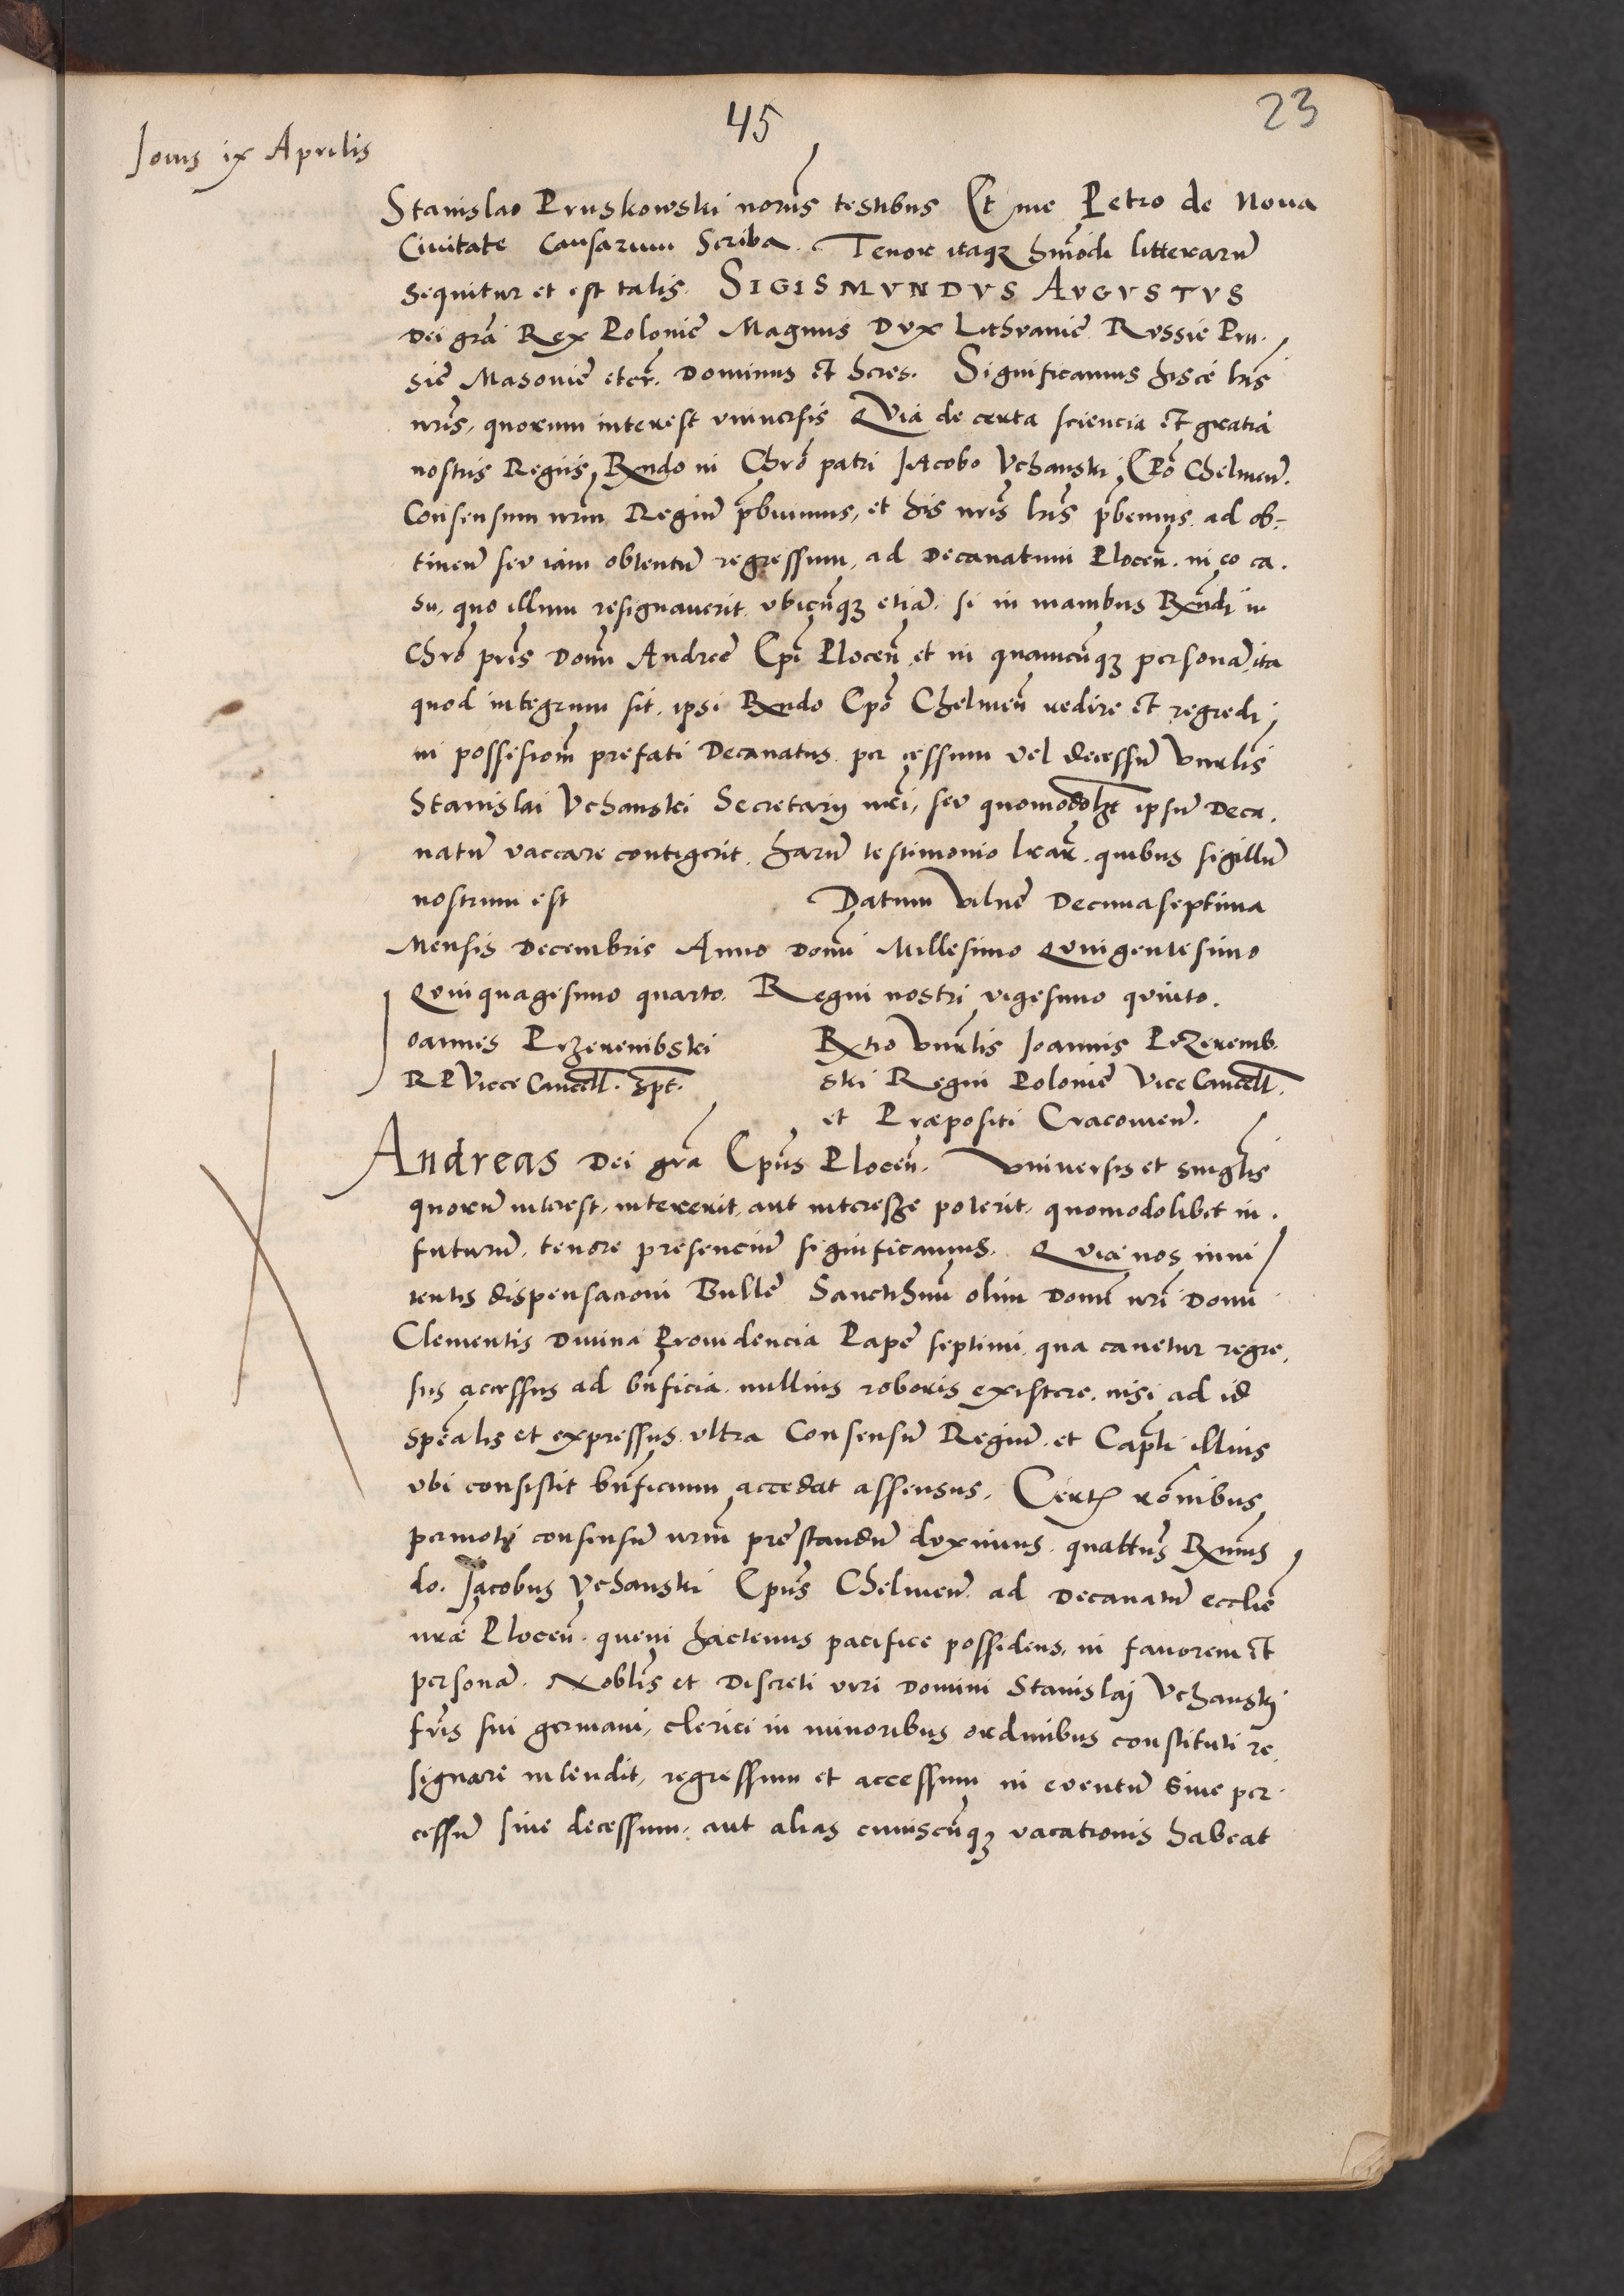 45
23
Jouis ix Aprilis
Stanislao Pruskowski norijs testibus Et me Petro de Noua
Ciuitate Causarum Scriba. Tenor itaqꝫ hm̄odi litterarū
sequitur et est talis. SIGISMVNDVS AVGVSTVS
Dei grā Rex Polonie Magnus Dux Lithuanie Russie Pru.
sie Masouie etcr̄. Dominus et heres. Significamus hisce lr̄is
nr̄is, quorum interest vniuersis Quia de certa sciencia et gratia
nostris Regijs, Rx̄ndo in Chrō patri Jacobo Vchanski Epō Chelmen̄.
Consensum nr̄m Regiū p̄buimus, et his nr̄is lr̄is p̄bemus ad ob-
tinen̄ seu iam obtentū regressum, ad Decanatum Plocen̄. in eo ca.
su, quo illum resignauerit vbicūqꝫ etiā. si in manibus Rx̄ndi in
Chrō pr̄is Domi Andree Epī Plocen̄, et in quamcūqꝫ personā, ita
quod integrum sit ipsi Rx̄ndo Epō Chelmen̄ redire et regredi
in possesiom̄ prefati Decanatus per cessum vel decessū Vnr̄lis
Stanislai Vchanski Secretarij nr̄i, seu quomodolꝫt ipsū Deca.
natū vaccare contigerit. harū testimonio lr̄ar̄. quibus sigillū
nostrum est Datum Vilne Decimaseptima
Mensis Decembris Anno Domi Millesimo Quingentesimo
Quinquagesimo quarto. Regni nostri vigesimo quinto.
Joannes Przerembski
RP Vicce Cancell. spt.
Rx̄tio Vnr̄lis Joannis Przeremb.
ski Regni Polonie Vice Cancell.
et Præpositi Cracouien̄.
Andreas Dei grā Epūs Plocen̄. Vniuersis et singlīs
quorū interest, intererit, aut interesze poterit, quomodolibet in.
futurū, tenore presenciū significamus. Quia nos inni
tentis dispensacioni Bulle Sanctissimi olim Domi nr̄i Domi
Clementis Diuina Prouidencia Pape septimi, qua cauetur regre,
sus accessus ad bn̄ficia nullius roboris existere, nisi ad id
spēalis et expressus vltra Consensū Regiū. et Capl̄i illius
vbi consistit bn̄ficium accedat assensus. Certꝭ rōnibus
permoti consensū nr̄m prestandū duximus. quattūs Rx̄mus
do. Jacobus Vchanski Epūs Chelmen̄. ad Decanatū eccl̄ie
nr̄ae Plocen̄. quem hactenus pacifice possidens, in fauorem et
personā. Nobl̄is et Discreti viri Domini Stanislaj Vchanskj
fr̄is sui germani, clerici in minoribus ordinibus constituti re,
signare intendit, regressum et accessum in euentū siue per
cessū siue decessum, aut alias cuiuscūqꝫ vacationis habeat